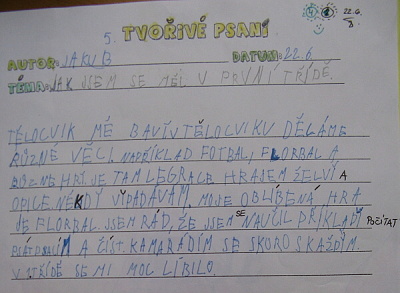 22.6.
5. TVOŘIVÉ PSANÍ
AUTOR: JAKUB DATUM: 22.6
TÉMA: JAK JSEM SE MĚL V PRVNÍ TŘÍDĚ.
TĚLOCVIK MĚ BAVÍ V TĚLOCVIKU DĚLÁME
RŮZNÉ VĚCI, NAPŘÍKLAD FOTBAL, FLORBAL A
RŮZNÉ HRI JE TAM LEGRACE HRAJEM ŽELVI A
OPICE NĚKDY VIPADÁVÁM. MOJE OBLÍBENÁ HRA
JE FLORBAL. JSEM RÁD, ŽE JSEM SE NAUČIL PŘÍKLADI POČÍTAT
PSÁT A ČÍST. KAMARÁDÍM SE SKORO S KAŽDÍM
V TŘÍDĚ SE MI MOC LÍBILO.